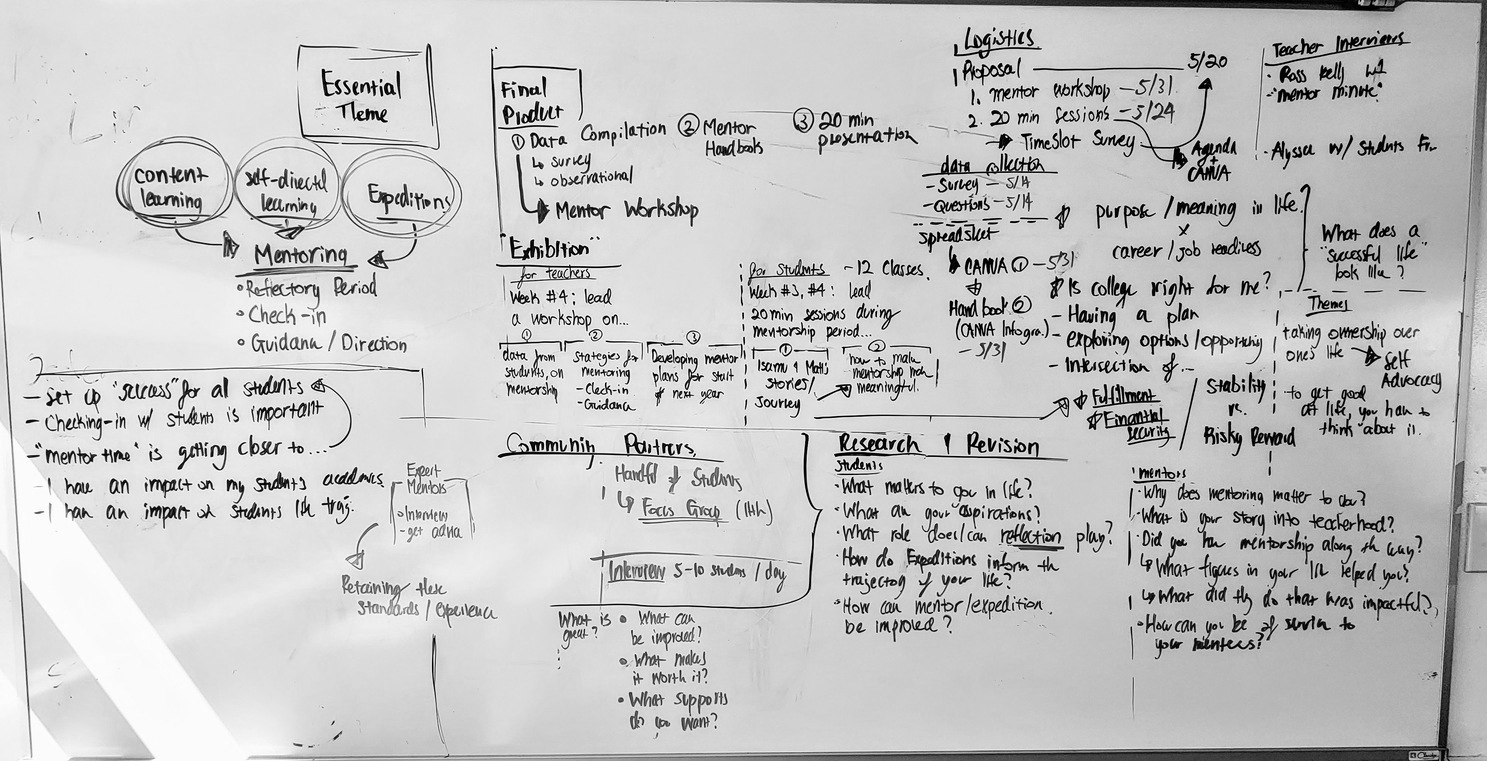 Essential
Theme
content
learning
self-directd
learning
Expeditions
Mentoring
• Reflectory Period
• Check-in
• Guidana / Direction
- Set up "success" for all students
- Checking-in w/ students is important
- "mentor time" is getting closer to...
- I have an impact on my students academics
- I han an impact on students life traj.
Expert
Mentors
• Interview
- get advia
Retaining these
standards / experience
Final
Product
① Data Compilation
↳ survey
↳ observational
Mentor Workshop
② Mentor
Handbook
③ 20 min
presentation
"Exhibition"
for teachers
Week #4: lead
a workshop on...
①
data from
students, on
mentorship
②
Stategies for
mentoring
- Check-in
- Guidana
③
Developing mentor
plans for start
of next year
for students - 12 Classes.
Week #3, #4: lead
20 min sessions during
mentorship period...
①
Isamu & Matt's
Stories/
Journey
②
how to make
mentorship more
meaningful.
Logistics
Proposal 5/20
1. mentor workshop - 5/31
2. 20 min sessions - 5/24
TimeSlot Survey
Agenda
+
CANVA
data collection
- Survey - 5/14
- Questions - 5/14
Spreadsket
CANVA ① - 5/31
Handbook ②
(CANVA Infogra.)
- 5/31
Teacher Interviews
• Ross Kelly
- "mentor minute"
- Alyssa w/ Students
purpose / meaning in life?
x
career / job readiness
Is college right for me?
- Having a plan
- exploring options/opportunity
- Intersection of...
Fulfillment
Financial
security
Stability
vs.
Risky Reward
What does a
"successful life"
look like?
Themes
taking ownership over
one's life
Self
Advocacy
to get good
at life, you han to
think about it.
Community Partners
Handful of Students
↳ Focus Group (11th)
Interview 5-10 students / day
What is
great?
• What can
be improved?
• What makes
it worth it?
• What supports
do you want?
Research & Revision
Students
• What matters to you in life?
• What are your aspirations?
• What role does/can reflection play?
• How do Expeditions inform the
trajectory of your life?
• How can mentor/expedition
be improved?
mentors
- Why does mentoring matter to you?
- What is your story into teacherhood?
• Did you have mentorship along the way?
↳ What figures in your life helped you?
↳ What did they do that was impactful?
• How can you be of service to
your mentees?